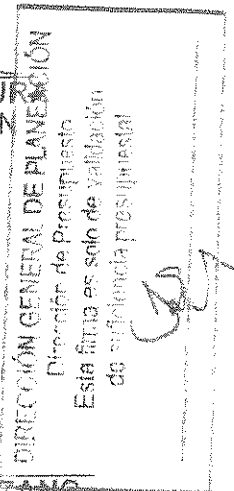 DIRECCIÓN GENERAL DE PLANEACIÓN
Dirección de Presupuesto
Esta firma es solo de validación
de suficiencia presupuestal